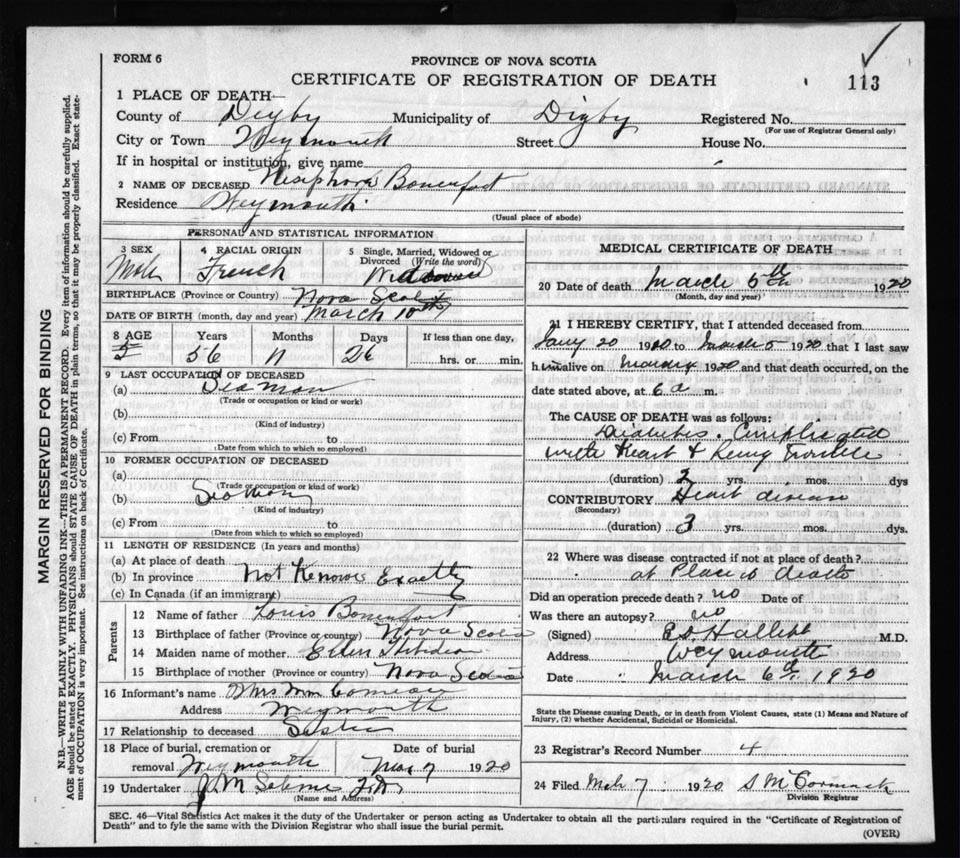 FORM 6
PROVINCE OF NOVA SCOTIA
CERTIFICATE OF REGISTRATION OF DEATH
113
1 PLACE OF DEATH—
County of Digby Municipality of Digby Registered No.
(For use of Registrar General only)
City or Town Weymouth Street House No.
If in hospital or institution, give name
2 NAME OF DECEASED Bonenfant
Residence Weymouth
(Usual place of abode)
PERSONAL AND STATISTICAL INFORMATION
3 SEX 4 RACIAL ORIGIN 5 Single, Married, Widowed or Divorced (Write the word)
Male French Widowed
BIRTHPLACE (Province or Country) Nova Scotia
DATE OF BIRTH (month, day and year) March 10th
8 AGE Years Months Days If less than one day,
56 11 26 hrs. or min.
9 LAST OCCUPATION OF DECEASED
(a) Seaman
(Trade or occupation or kind of work)
(b)
(Kind of industry)
(c) From to
(Date from which to which so employed)
10 FORMER OCCUPATION OF DECEASED
(a)
(Trade or occupation or kind of work)
(b) Seaman
(Kind of industry)
(c) From to
(Date from which to which so employed)
11 LENGTH OF RESIDENCE (In years and months)
(a) At place of death
(b) In province Not Known Exactly
(c) In Canada (if an immigrant)
Parents
12 Name of father Louis Bonenfant
13 Birthplace of father (Province or country) Nova Scotia
14 Maiden name of mother Ellen Thibideau
15 Birthplace of mother (Province or country) Nova Scotia
16 Informant's name Mrs Wm Comeau
Address Weymouth
17 Relationship to deceased Sister
18 Place of burial, cremation or removal Weymouth
Date of burial Mar 7 1920
19 Undertaker J M Sabine
(Name and Address)
MEDICAL CERTIFICATE OF DEATH
20 Date of death March 5th 1920
(Month, day and year)
21 I HEREBY CERTIFY, that I attended deceased from
Jany 20 1920 to March 5 1920 that I last saw
him alive on March 4 1920 and that death occurred, on the
date stated above, at 6 a m.
The CAUSE OF DEATH was as follows:
Diabetes. Complicated
with Heart & Kidney Trouble
(duration) 2 yrs. mos. dys
CONTRIBUTORY Heart disease
(Secondary)
(duration) 3 yrs. mos. dys.
22 Where was disease contracted if not at place of death?
at Place of death
Did an operation precede death? no Date of
Was there an autopsy? no
(Signed) Hallett M.D.
Address Weymouth
Date March 6th 1920
State the Disease causing Death, or in death from Violent Causes, state (1) Means and Nature of
Injury, (2) whether Accidental, Suicidal or Homicidal.
23 Registrar's Record Number 4
24 Filed Mch 7 1920 S McCormack
Division Registrar
SEC. 46—Vital Statistics Act makes it the duty of the Undertaker or person acting as Undertaker to obtain all the particulars required in the "Certificate of Registration of
Death" and to fyle the same with the Division Registrar who shall issue the burial permit.
(OVER)
MARGIN RESERVED FOR BINDING
N.B.—WRITE PLAINLY WITH UNFADING INK—THIS IS A PERMANENT RECORD. Every item of information should be carefully supplied.
AGE should be stated EXACTLY. PHYSICIANS should STATE CAUSE OF DEATH in plain terms, so that it may be properly classified. Exact statement
of OCCUPATION is very important. See instructions on back of Certificate.